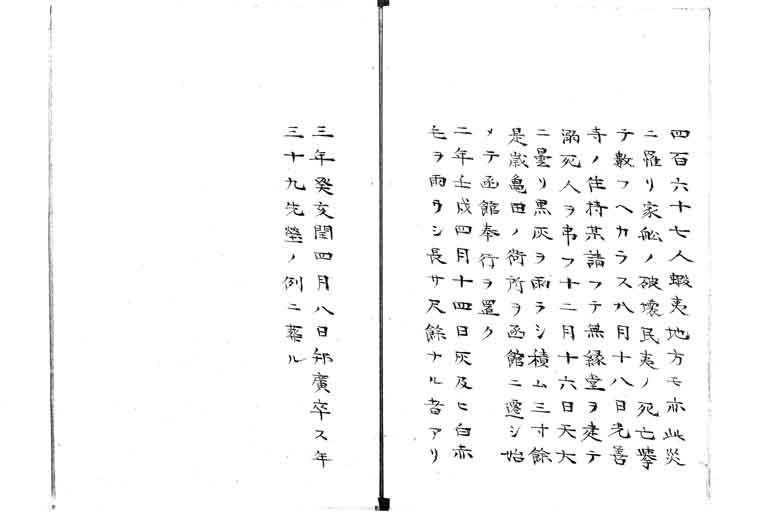 四百六十七人蝦夷地方モ亦此災
ニ罹リ家舩ノ破壊民夷ノ死亡挙
テ數フヘカラス八月十八日光善
寺ノ住持某請フテ無縁堂ヲ建テ
溺死人ヲ弔フ十二月十六日天大
ニ曇リ黒灰ヲ雨ラシ積ム三寸餘
是歳亀田ノ衙所ヲ函館ニ遷シ始
メテ函館奉行ヲ置ク
二年壬戌四月十四日灰及ヒ白赤
毛ヲ雨ラシ長サ尺餘ナル者アリ
三年癸亥閏四月八日邦廣卒ス年
三十九先塋ノ例ニ葬ル